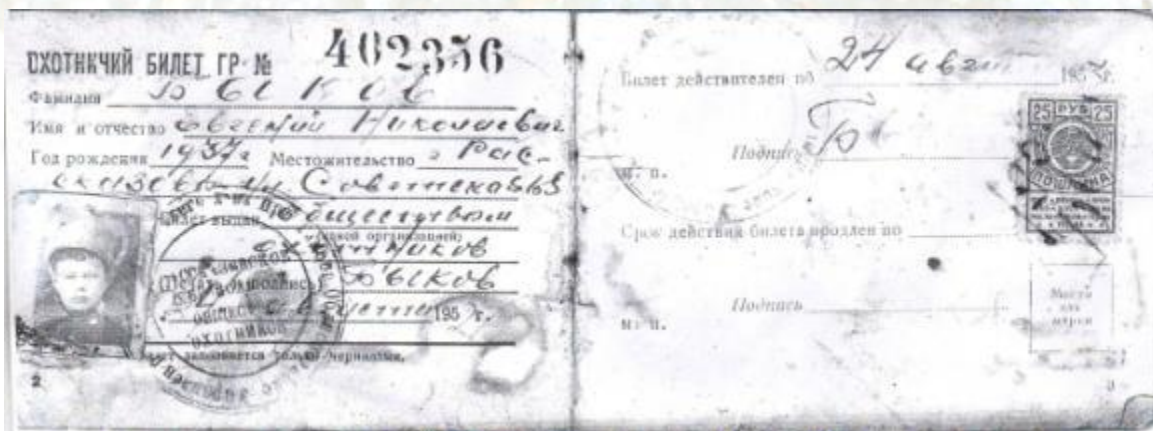 ОХОТНИЧИЙ БИЛЕТ ГР № 402356
Фамилия Быков
Имя и отчество Евгений Николаевич
Год рождения 1937г Местожительство г Рас-
сказово ул Советская
Билет выдан Обществом
охотников
Быков
августа 195 г.
заполняется только чернилами.
2
Билет действителен по 24 авг 195 г.
Подпись Б
М. П.
Срок действия билета продлен по
Подпись
М. П.
Место
для
марки
25 РУБ 25
ПОШЛИНА
ОХОТНИКОВ
3